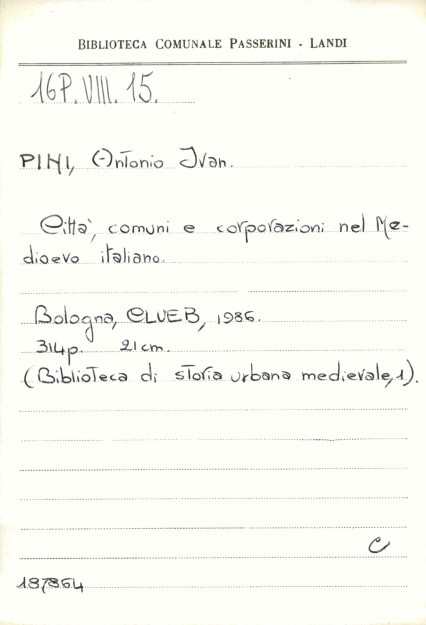 BIBLIOTECA COMUNALE PASSERINI - LANDI
16P.VIII.15.
PINI, Antonio Ivan.
Città, comuni e corporazioni nel Me-
dioevo italiano.
Bologna, CLUEB, 1986.
314p. 21cm.
(Biblioteca di storia urbana medievale, 1).
C